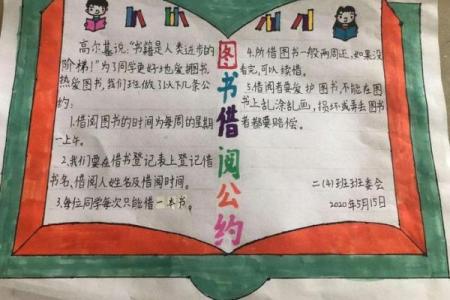 图书借阅公约
高尔基说:“书籍是人类进步的
阶梯!”为了同学更好地爱拥书,
热爱图书,我们班做了以下几条公
约:
1.借阅图书的时间为每周的星期
一上午。
2.我们要在借书登记表上登记借
书名、借阅人姓名及借阅时间。
3.每位同学每次只能借一本书。
4.所借图书一般两周还,如果没
看完,可以续借。
5.借阅者要爱护图书,不能在图
书上乱涂乱画,损坏或弄丢图书
者都要赔偿。
二(4)班班委会
2020年5月15日